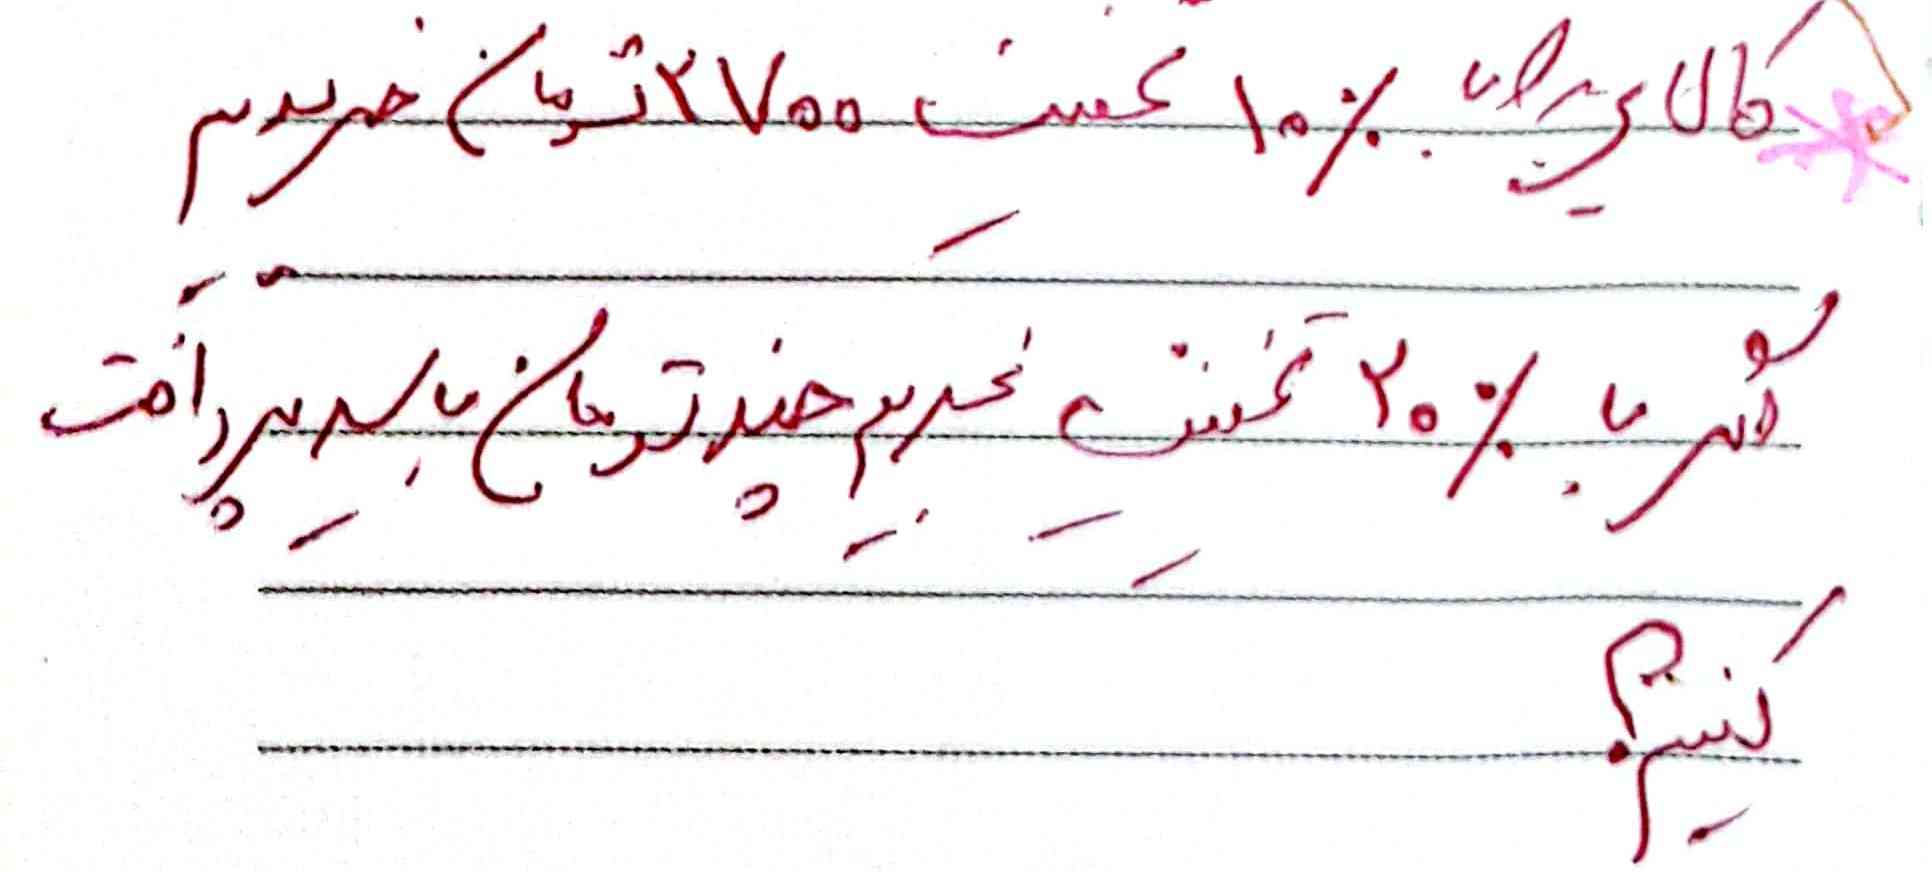 کالایی را با ۱۰٪ تخفیف ۲۷۰۰ تومان خریدیم
اگر با ۲۰٪ تخفیف بخریم چند تومان باید پرداخت
کنیم؟